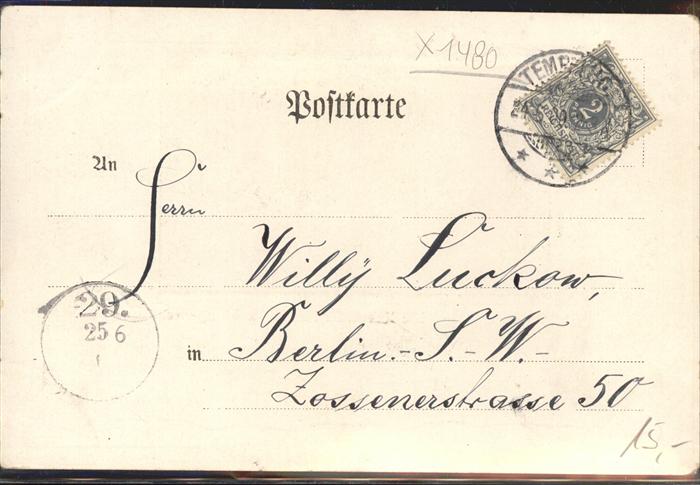 X1480
Postkarte
TEMP
2
An
Herrn
Willÿ Luckow,
29.
25 6
in Berlin.-S.-W.-
Zossenerstrasse 50
15,-